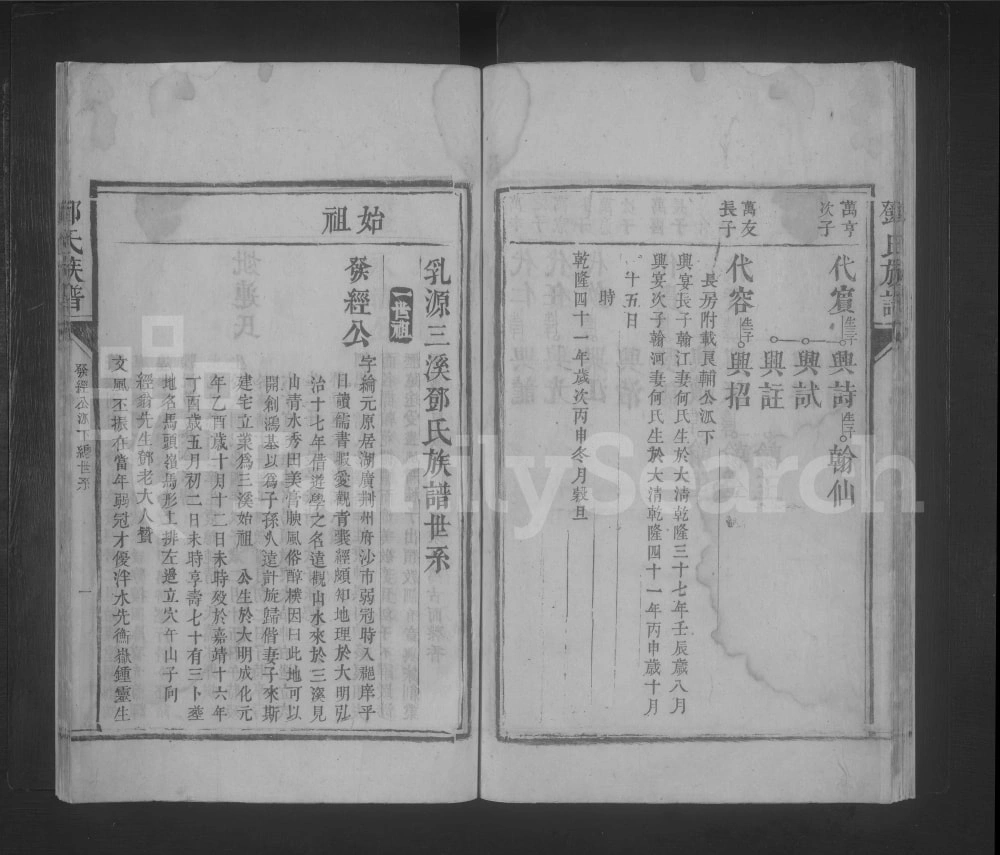 鄧氏族譜
萬亨次子 代賓 生子 興詩 生子 翰仙
興試
興註
萬友長子 代容 生子 興招
長房附載貢輔公派下
興宴長子翰江妻何氏生於大清乾隆三十七年壬辰歲八月
興宴次子翰河妻何氏生於大清乾隆四十一年丙申歲十月
十五日
時
乾隆四十一年歲次丙申冬月穀旦
始祖
乳源三溪鄧氏族譜世系
一世祖
發經公
字綸元原居湖廣荆州府沙市弱冠時入邑庠平
日讀儒書暇愛觀青囊經頗知地理於大明弘
治十七年借遊學之名遠觀山水來於三溪見
山青水秀田美膏腴風俗醇樸因曰此地可以
開創鴻基以為子孫久遠計旋歸偕妻子來斯
建宅立業為三溪始祖 公生於大明成化元
年乙酉歲十月十二日未時歿於嘉靖十六年
丁酉歲五月初二日未時享壽七十有三卜塟
地名馬頭嶺馬形土排左邊立穴午山子向
經翁先生鄧老大人贊
文風丕振在當年弱冠才優泮水先衡嶽鍾靈生
鄧氏族譜
發經公派下總世系
一
FamilySearch